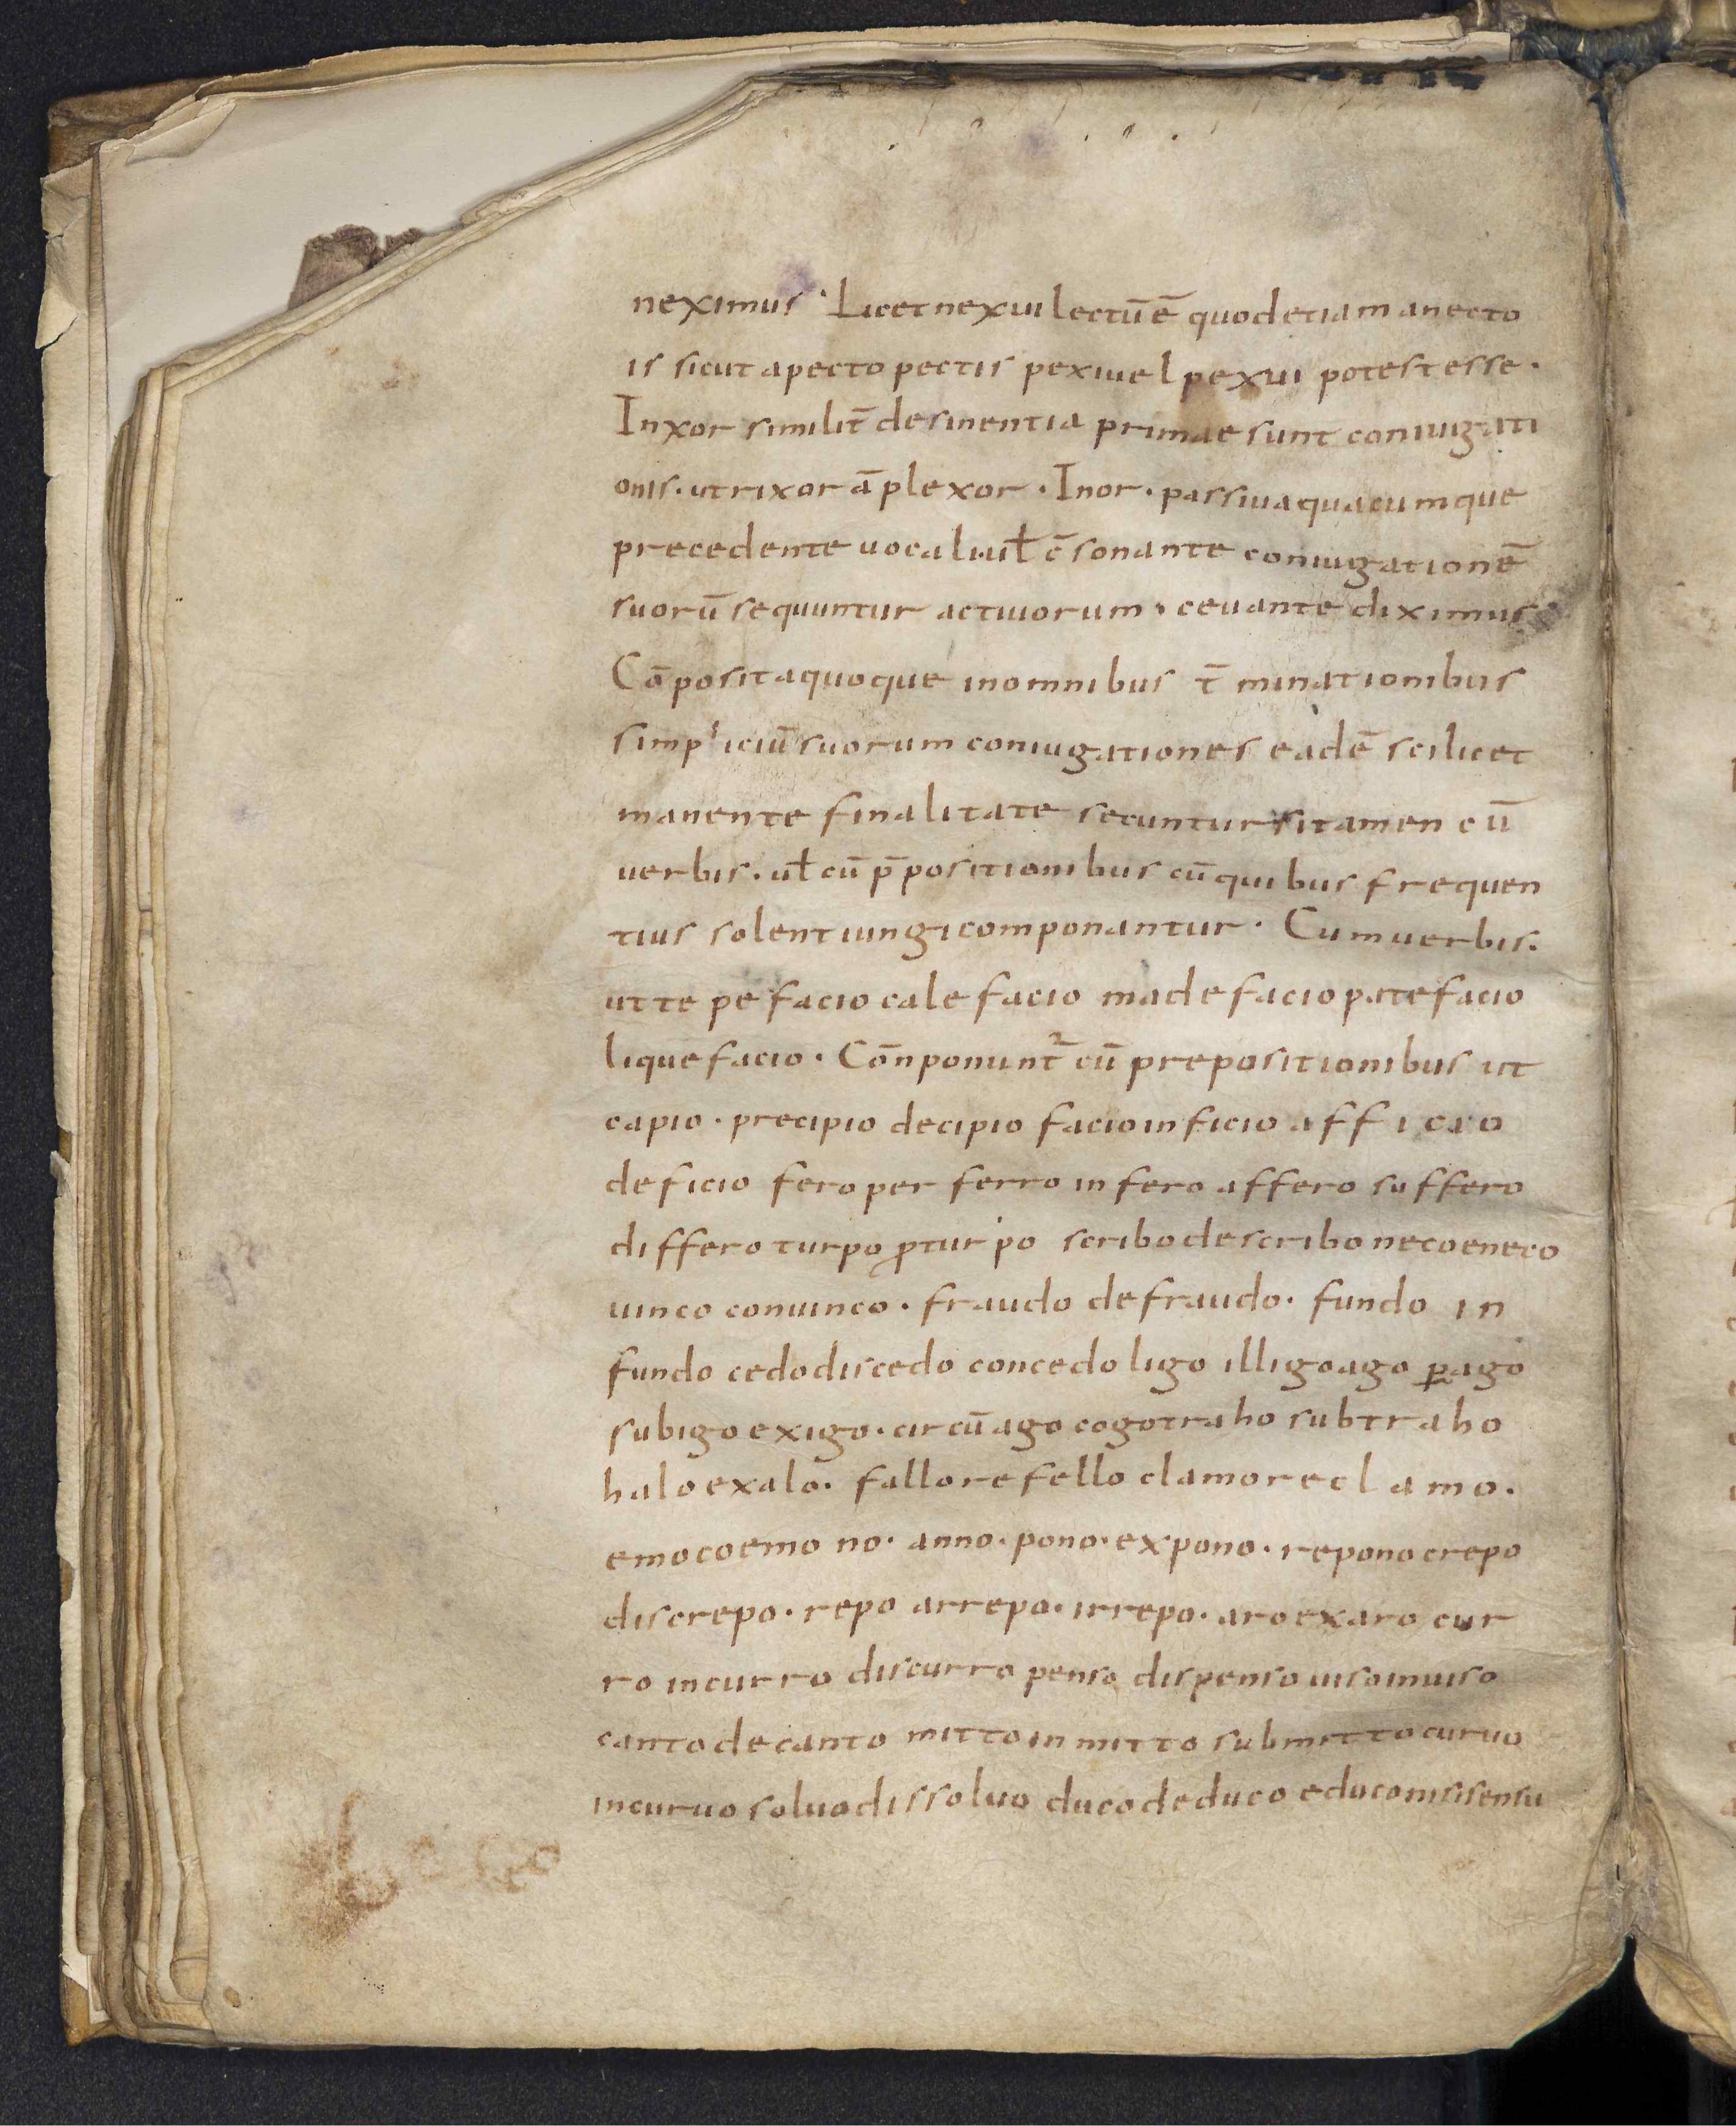 neximus · Licet nexui lectū ē quod etiam a necto
is sicut a pecto pectis pexi uel pexui potest esse ·
In xor similit̄ desinentia primae sunt coniugati
onis · ut rixor āplexor · In or · passiua quacumque
precedente uocali ul̄ c̄sonante coniugationē
suorū sequuntur actiuorum · ceu ante diximus
Cōposita quoque in omnibus t̄minationibus
simpliciū suorum coniugationes eadē scilicet
manente finalitate secuntur si tamen cū
uerbis · ul̄ cū p̄positionibus cū quibus frequen
tius solent iungi componantur · Cum uerbis ·
ut tepefacio calefacio madefacio patefacio
liquefacio · Cōnponunt᷑ cū prepositionibus ut
capio · precipio decipio facio inficio afficio
deficio fero perferro infero affero suffero
differo turpo ꝓturpo scribo describo neco eneco
uinco conuinco · fraudo defraudo · fundo in
fundo cedo discedo concedo ligo illigo ago ꝑago
subigo exigo · circūago cogo traho subtraho
halo exalo · fallo refello clamo reclamo ·
emo coemo no · anno · pono · expono · repono crepo
discrepo · repo arrepo · irrepo · aro exaro cur
ro incurro discurro penso dispenso uiso inuiso
canto decanto mitto inmitto submitto curuo
incuruo soluo dissoluo duco deduco educo nisi sensu